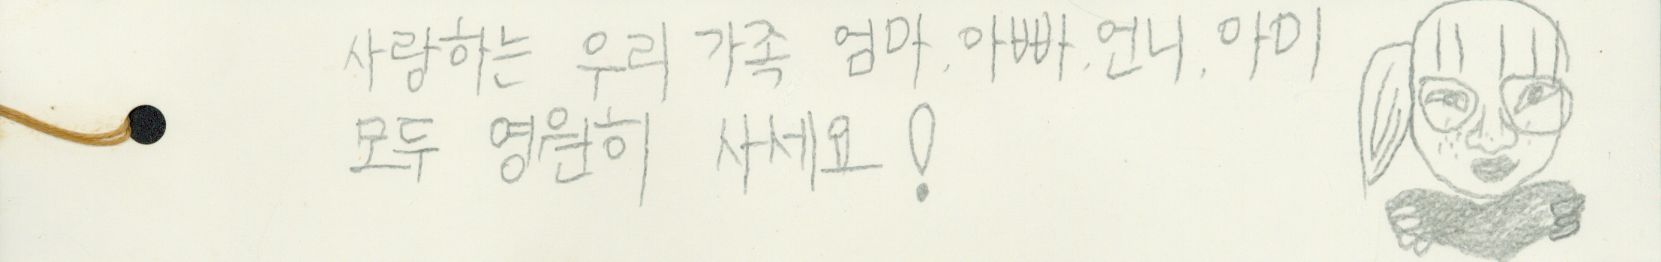 사랑하는 우리 가족 엄마, 아빠, 언니, 아미
모두 영원히 사세요!